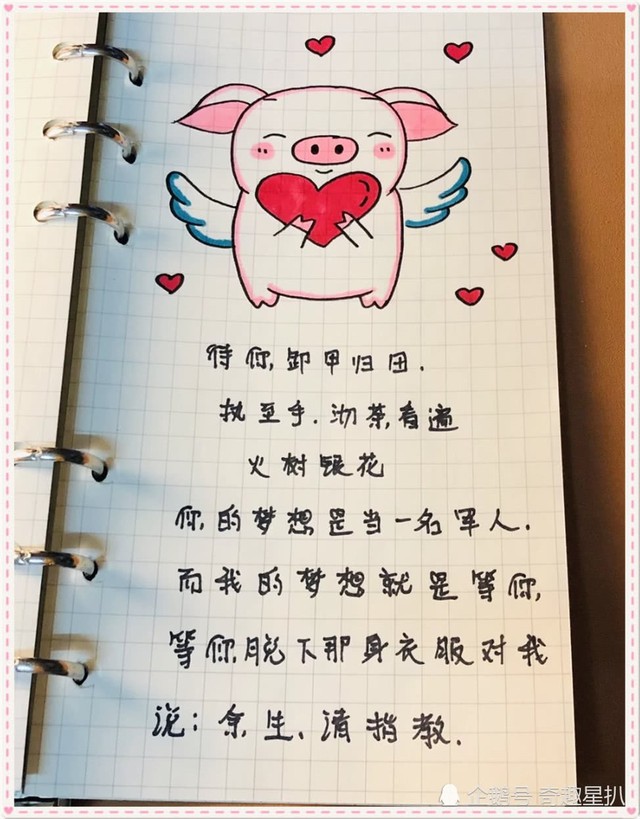 待你,卸甲归田.
执至手.沏茶,看遍
火树银花
你的梦想是当一名军人.
而我的梦想就是等你,
等你脱下那身衣服对我
说:余生、请指教.
企鹅号 奇趣星扒